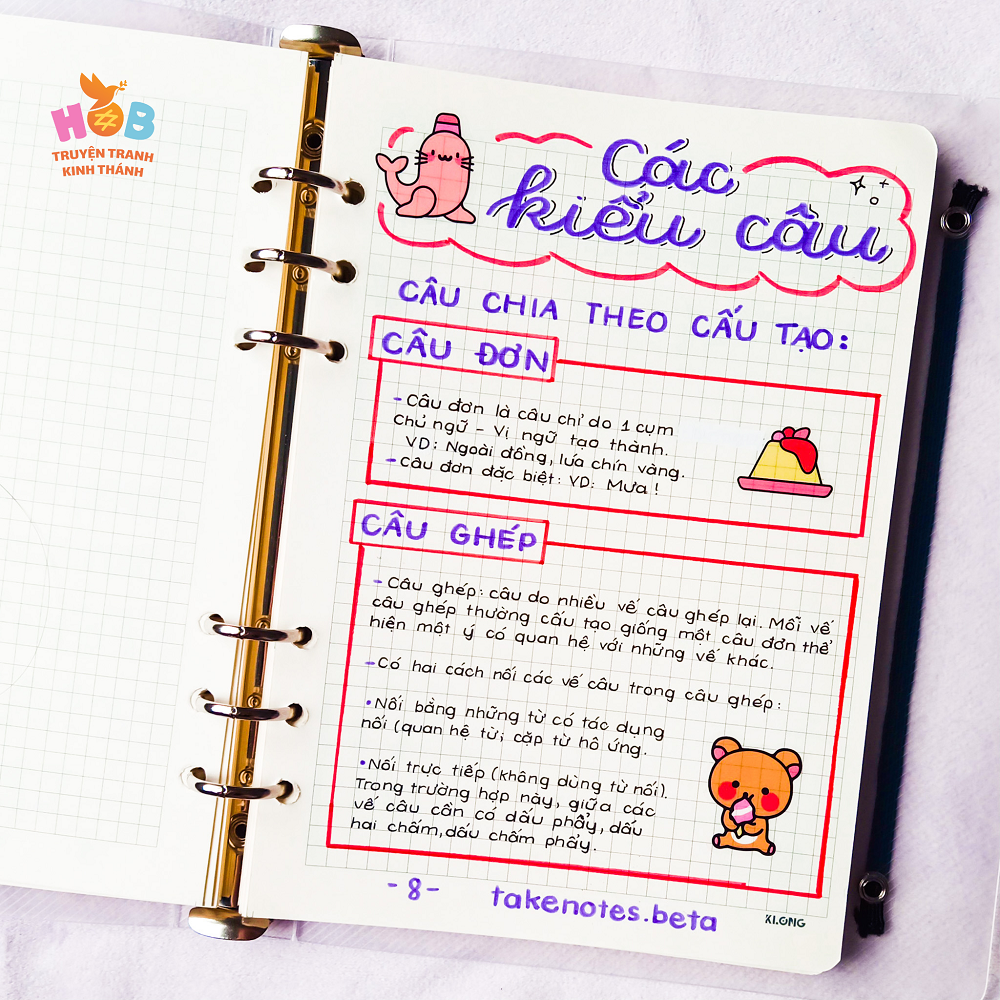 HOB
TRUYỆN TRANH
KINH THÁNH
Các
kiểu câu
CÂU CHIA THEO CẤU TẠO:
CÂU ĐƠN
- Câu đơn là câu chỉ do 1 cụm
Chủ ngữ - Vị ngữ tạo thành.
VD: Ngoài đồng, lứa chín vàng.
- Câu đơn đặc biệt: VD: Mưa!
CÂU GHÉP
- Câu ghép: câu do nhiều vế câu ghép lại. Mỗi vế
câu ghép thường cấu tạo giống một câu đơn thể
hiện một ý có quan hệ với những vế khác.
- Có hai cách nối các vế câu trong câu ghép:
• Nối bằng những từ có tác dụng
nối (quan hệ từ; cặp từ hô ứng.
• Nối trực tiếp (không dùng từ nối).
Trong trường hợp này, giữa các
vế câu cần có dấu phẩy, dấu
hai chấm, dấu chấm phẩy.
- 8 - takenotes.beta
KLONG